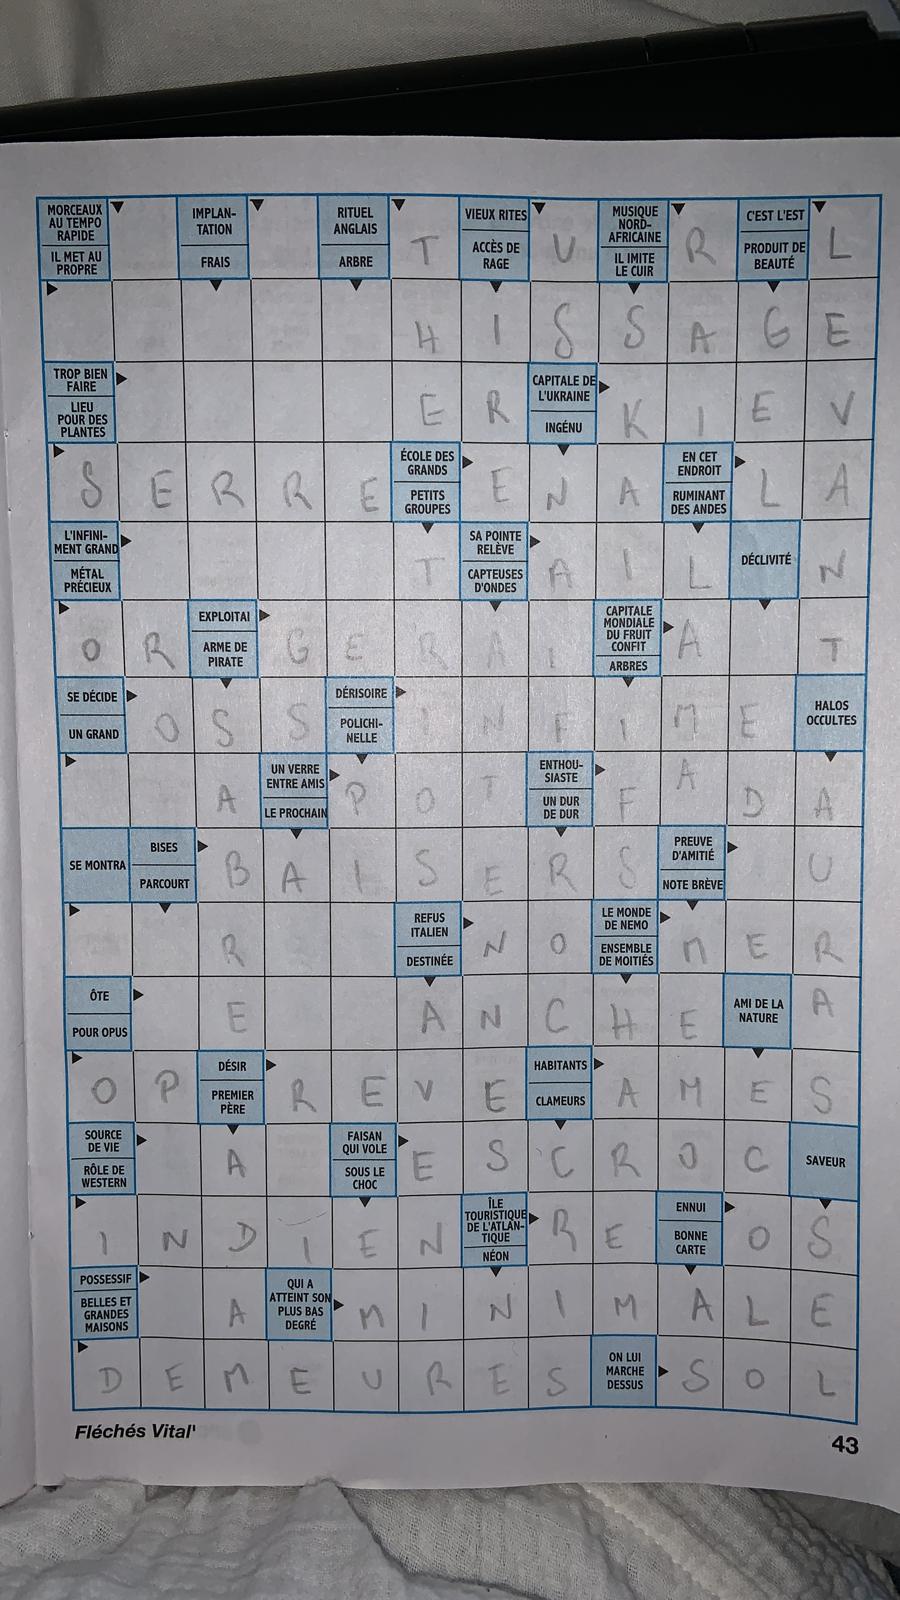 MORCEAUX AU TEMPO RAPIDE
IL MET AU PROPRE
IMPLAN-TATION
FRAIS
RITUEL ANGLAIS
ARBRE
T
VIEUX RITES
ACCÈS DE RAGE
U
MUSIQUE NORD-AFRICAINE
IL IMITE LE CUIR
R
C'EST L'EST
PRODUIT DE BEAUTÉ
L
H I S S A G E
TROP BIEN FAIRE
LIEU POUR DES PLANTES
E R
CAPITALE DE L'UKRAINE
INGÉNU
K I E V
S E R R E
ÉCOLE DES GRANDS
PETITS GROUPES
E N A
EN CET ENDROIT
RUMINANT DES ANDES
L A
L'INFINI-MENT GRAND
MÉTAL PRÉCIEUX
T
SA POINTE RELÈVE
CAPTEUSES D'ONDES
A I L
DÉCLIVITÉ
N
O R
EXPLOITAI
ARME DE PIRATE
G E R A I
CAPITALE MONDIALE DU FRUIT CONFIT
ARBRES
A T
SE DÉCIDE
UN GRAND
O S S
DÉRISOIRE
POLICHI-NELLE
I N F I M E
HALOS OCCULTES
A
UN VERRE ENTRE AMIS
LE PROCHAIN
P O T
ENTHOU-SIASTE
UN DUR DE DUR
F A D A
SE MONTRA
BISES
PARCOURT
B A I S E R S
PREUVE D'AMITIÉ
NOTE BRÈVE
U
R
REFUS ITALIEN
DESTINÉE
N O
LE MONDE DE NEMO
ENSEMBLE DE MOITIÉS
M E R
ÔTE
POUR OPUS
E A N C H E
AMI DE LA NATURE
A
O P
DÉSIR
PREMIER PÈRE
R E V E
HABITANTS
CLAMEURS
A M E S
SOURCE DE VIE
RÔLE DE WESTERN
A
FAISAN QUI VOLE
SOUS LE CHOC
E S C R O C
SAVEUR
I N D I E N
ÎLE TOURISTIQUE DE L'ATLAN-TIQUE
NÉON
R E
ENNUI
BONNE CARTE
O S
POSSESSIF
BELLES ET GRANDES MAISONS
A
QUI A ATTEINT SON PLUS BAS DEGRÉ
M I N I M A L E
D E M E U R E S
ON LUI MARCHE DESSUS
S O L
Fléchés Vital'
43